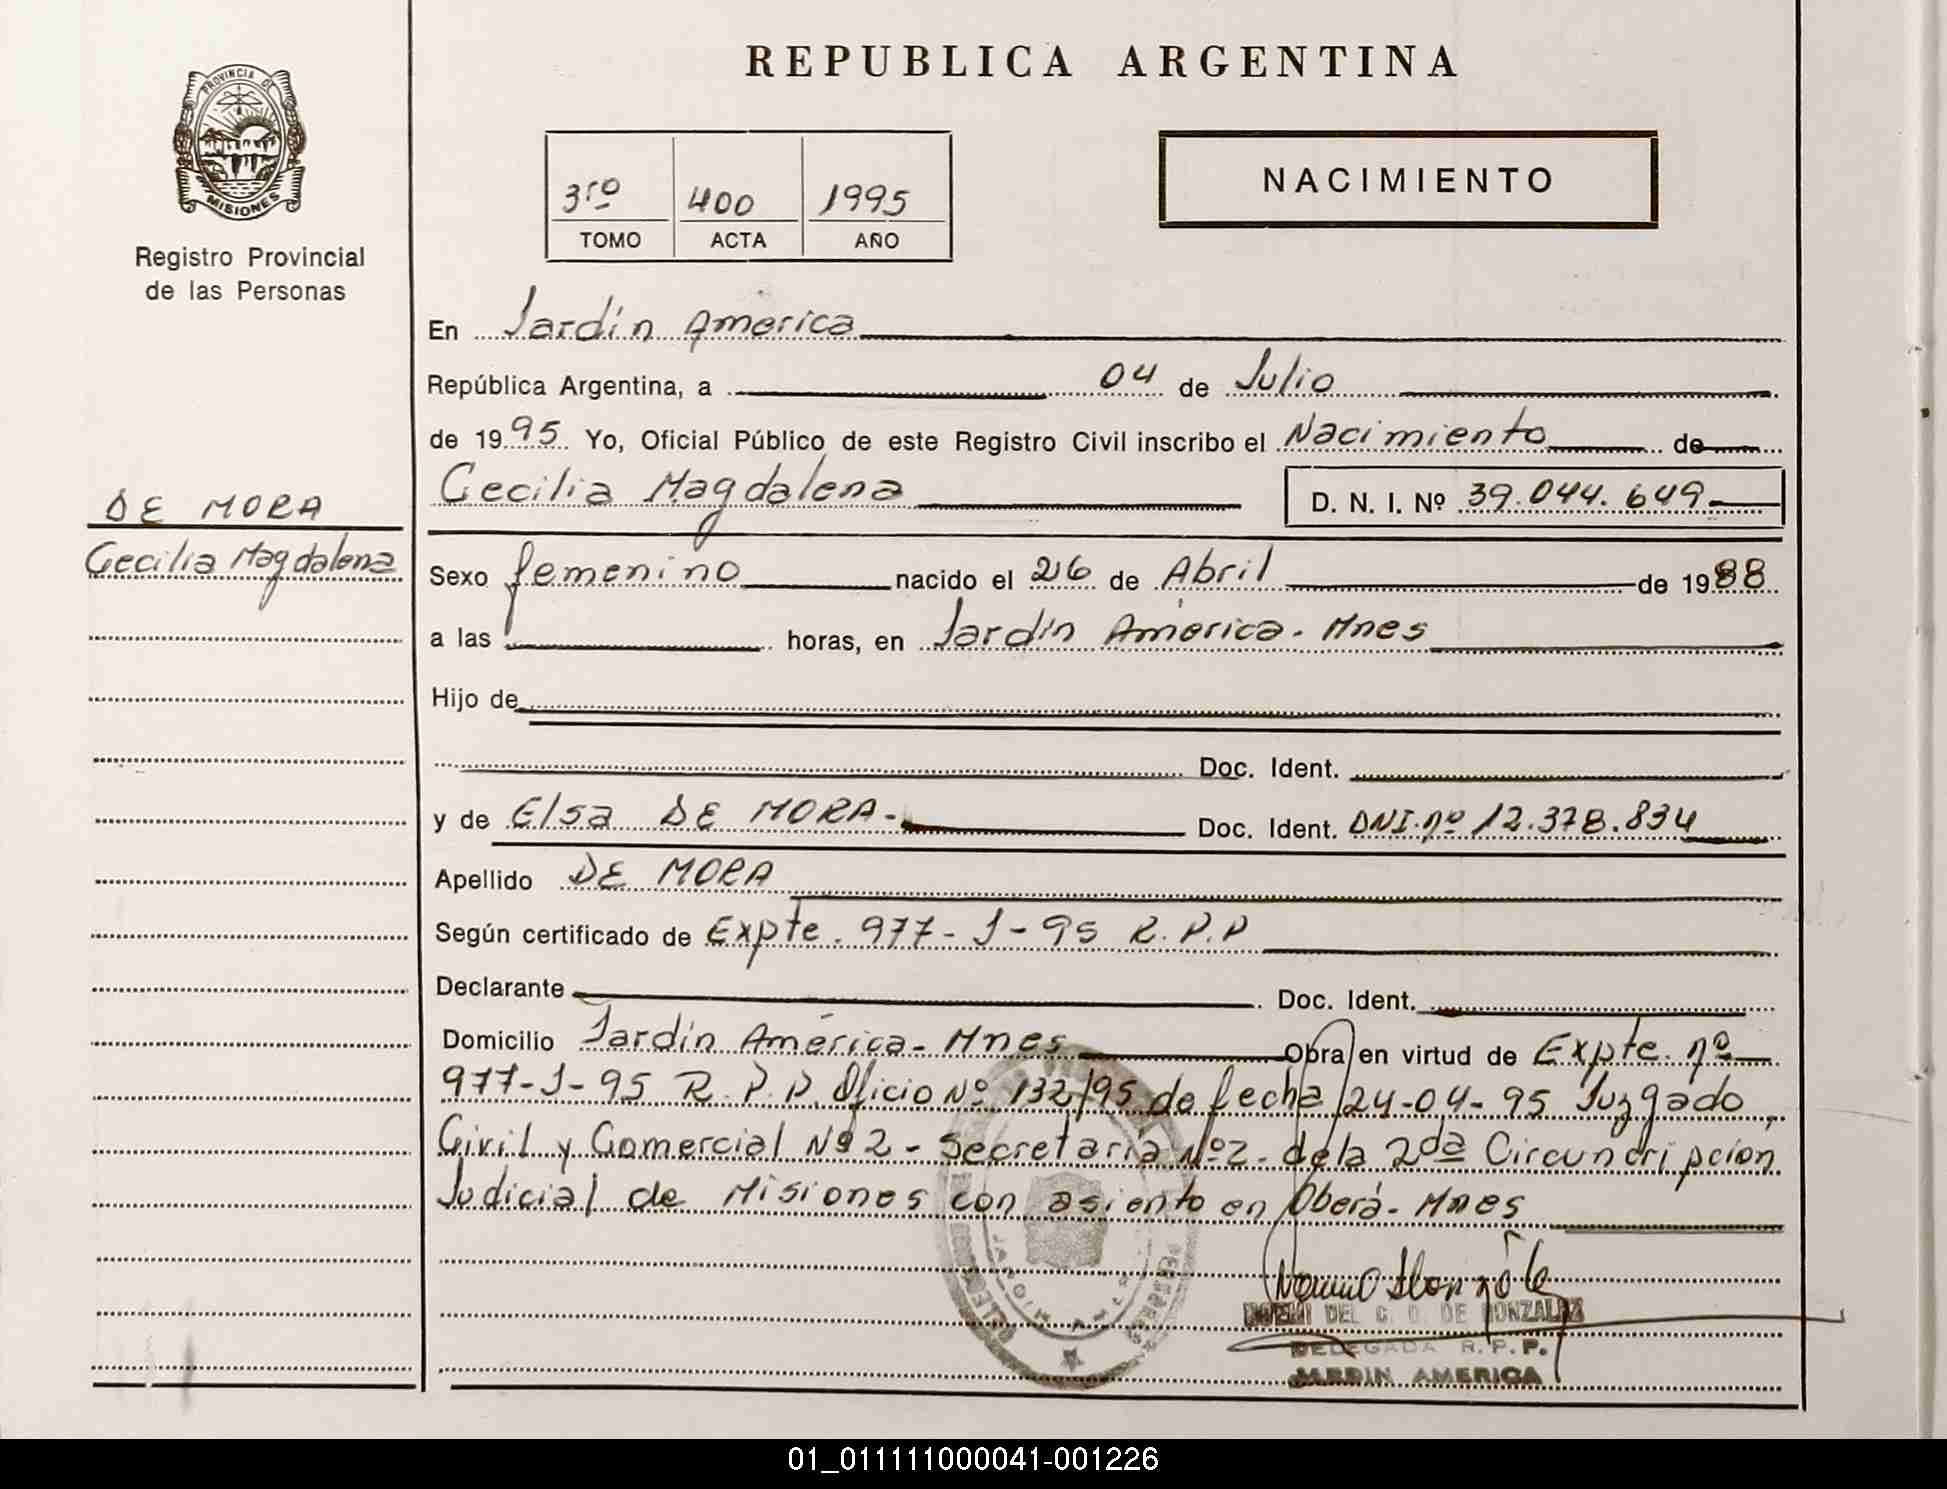 REPUBLICA ARGENTINA
PROVINCIA DE
MISIONES
Registro Provincial
de las Personas
3ro 400 1995
TOMO ACTA AÑO
NACIMIENTO
En Jardín América
República Argentina, a 04 de Julio
de 1995 Yo, Oficial Público de este Registro Civil inscribo el Nacimiento de
Cecilia Magdalena D. N. I. Nº 39.044.649
DE MORA
Cecilia Magdalena
Sexo femenino nacido el 26 de Abril de 1988
a las horas, en Jardín América. Mnes
Hijo de
Doc. Ident.
y de Elsa DE MORA. Doc. Ident. DNI. nº 12.378.834
Apellido DE MORA
Según certificado de Expte. 977-J-95 R.P.P
Declarante Doc. Ident.
Domicilio Jardín América- Mnes Obra en virtud de Expte. nº
977-J-95 R.P.P. Oficio Nº 132/95 de fecha 24-04-95 Juzgado
Civil y Comercial Nº 2 - Secretaría Nº 2. de la 2da Circuncripción
Judicial de Misiones con asiento en Oberá- Mnes
DEL C. D. DE GONZALEZ
DELEGADA R.P.P.
JARDIN AMERICA
01_011111000041-001226